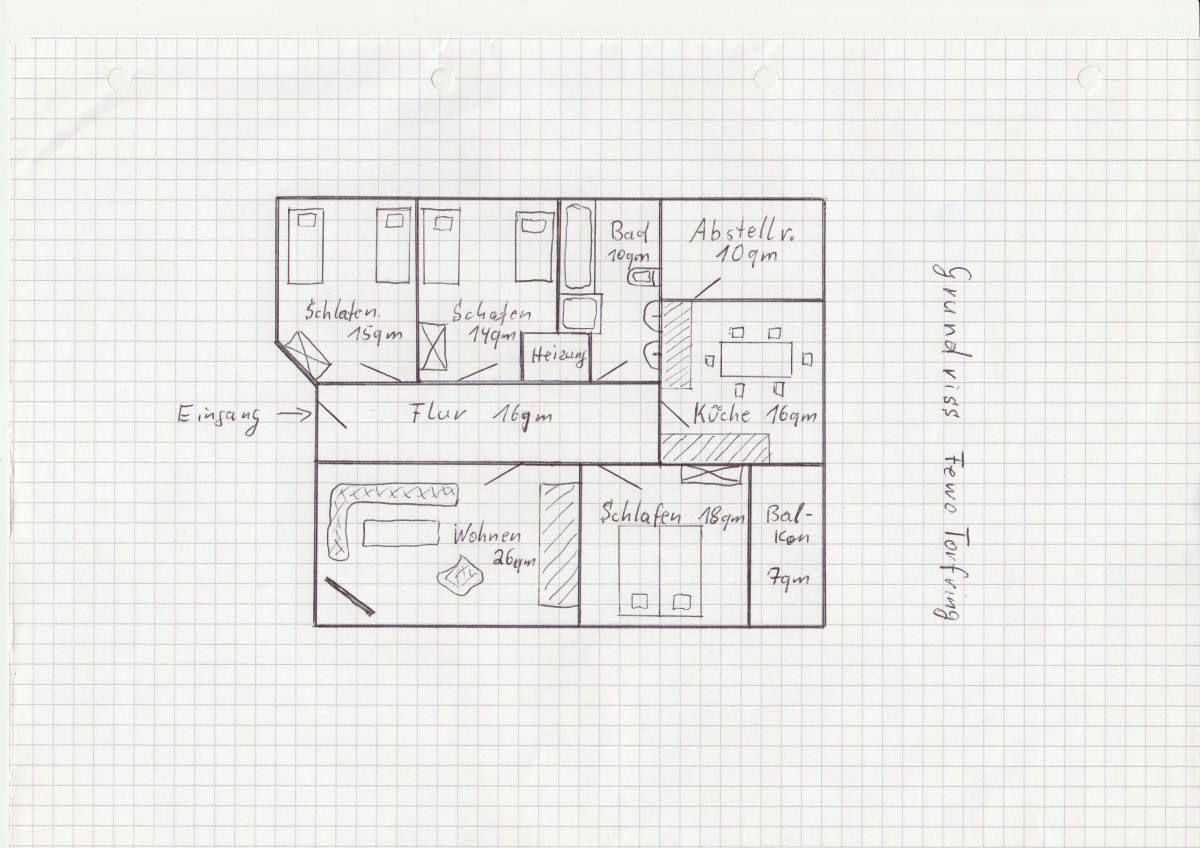 Schlafen.
15qm
Schafen
14qm
Heizung
Bad
10qm
Abstellr.
10qm
Eingang
Flur 16qm
Küche 16qm
Wohnen
26qm
Schlafen 18qm
Bal-
kon
7qm
Grundriss Fewo Torfring